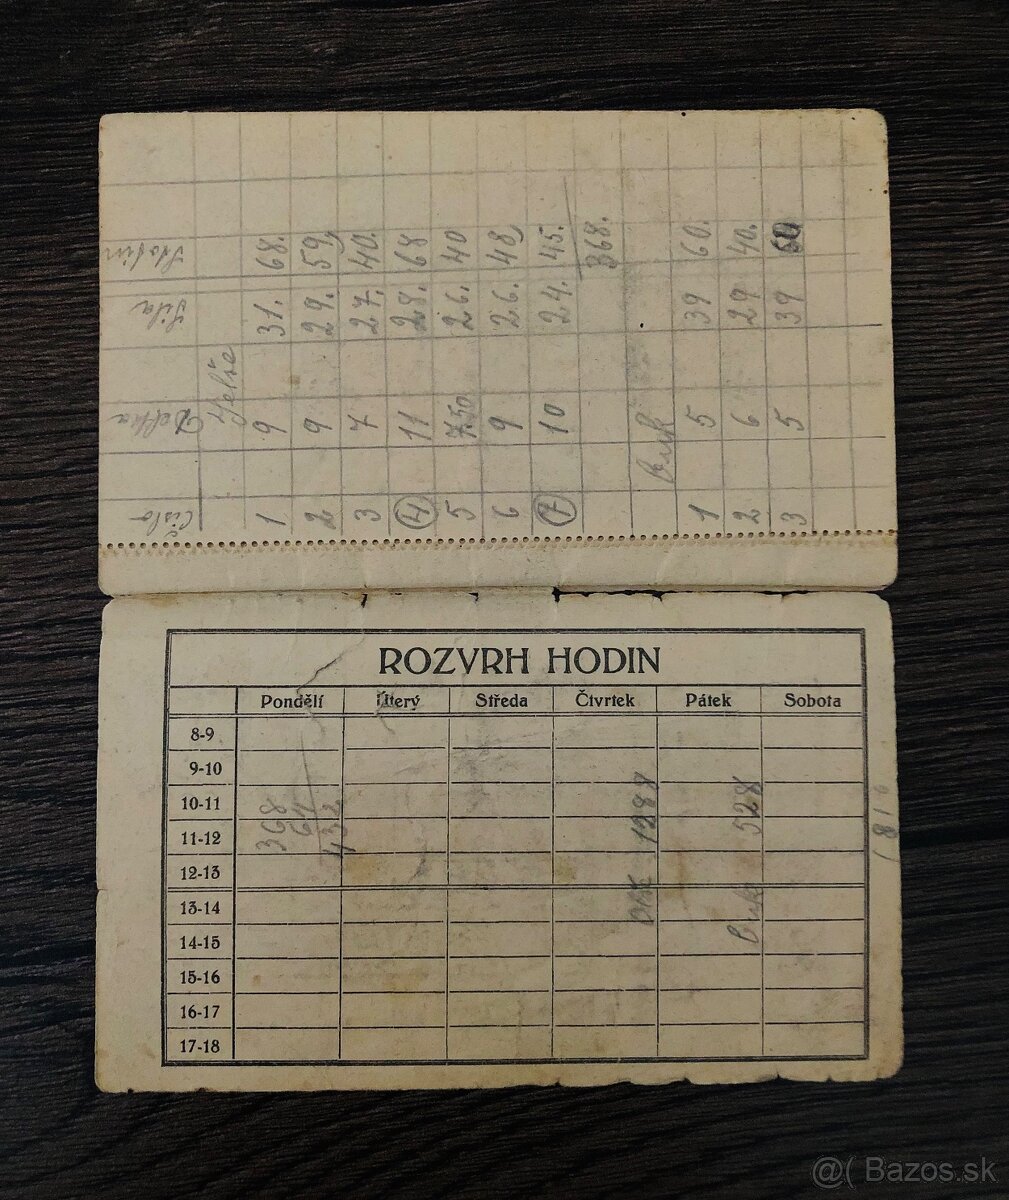 Číslo Délka Síla
1 9 31. 68.
2 9 29. 59
3 7 27. 40.
4 11 28. 68
5 7.50 26. 40
6 9 26. 48
7 10 24. 45.
368.
Buk
1 5 39 60.
2 6 29 40.
3 5 39 60
ROZVRH HODIN
Pondělí Úterý Středa Čtvrtek Pátek Sobota
8-9
9-10
10-11
11-12
12-13
13-14
14-15
15-16
16-17
17-18
368
64
432
1288
Buk 528
@( Bazos.sk